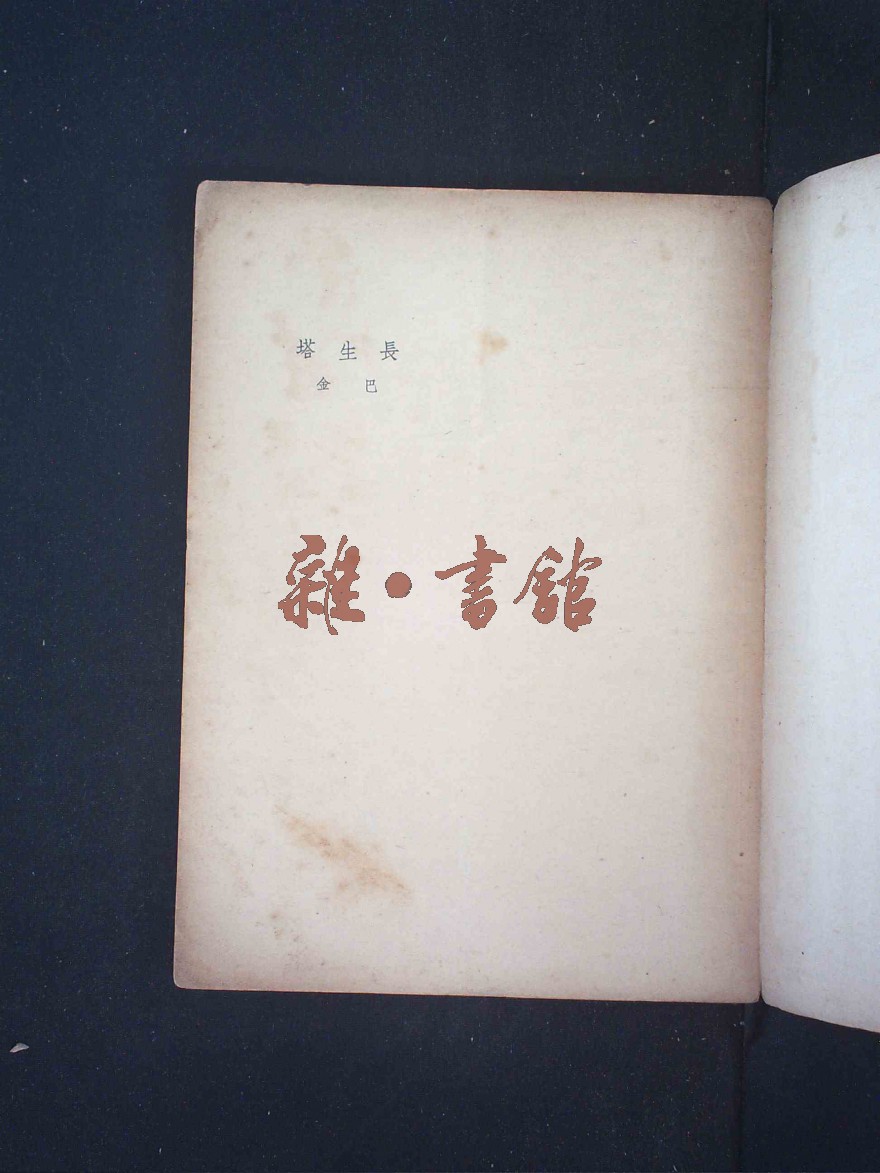 長生塔
巴金
雜·書館